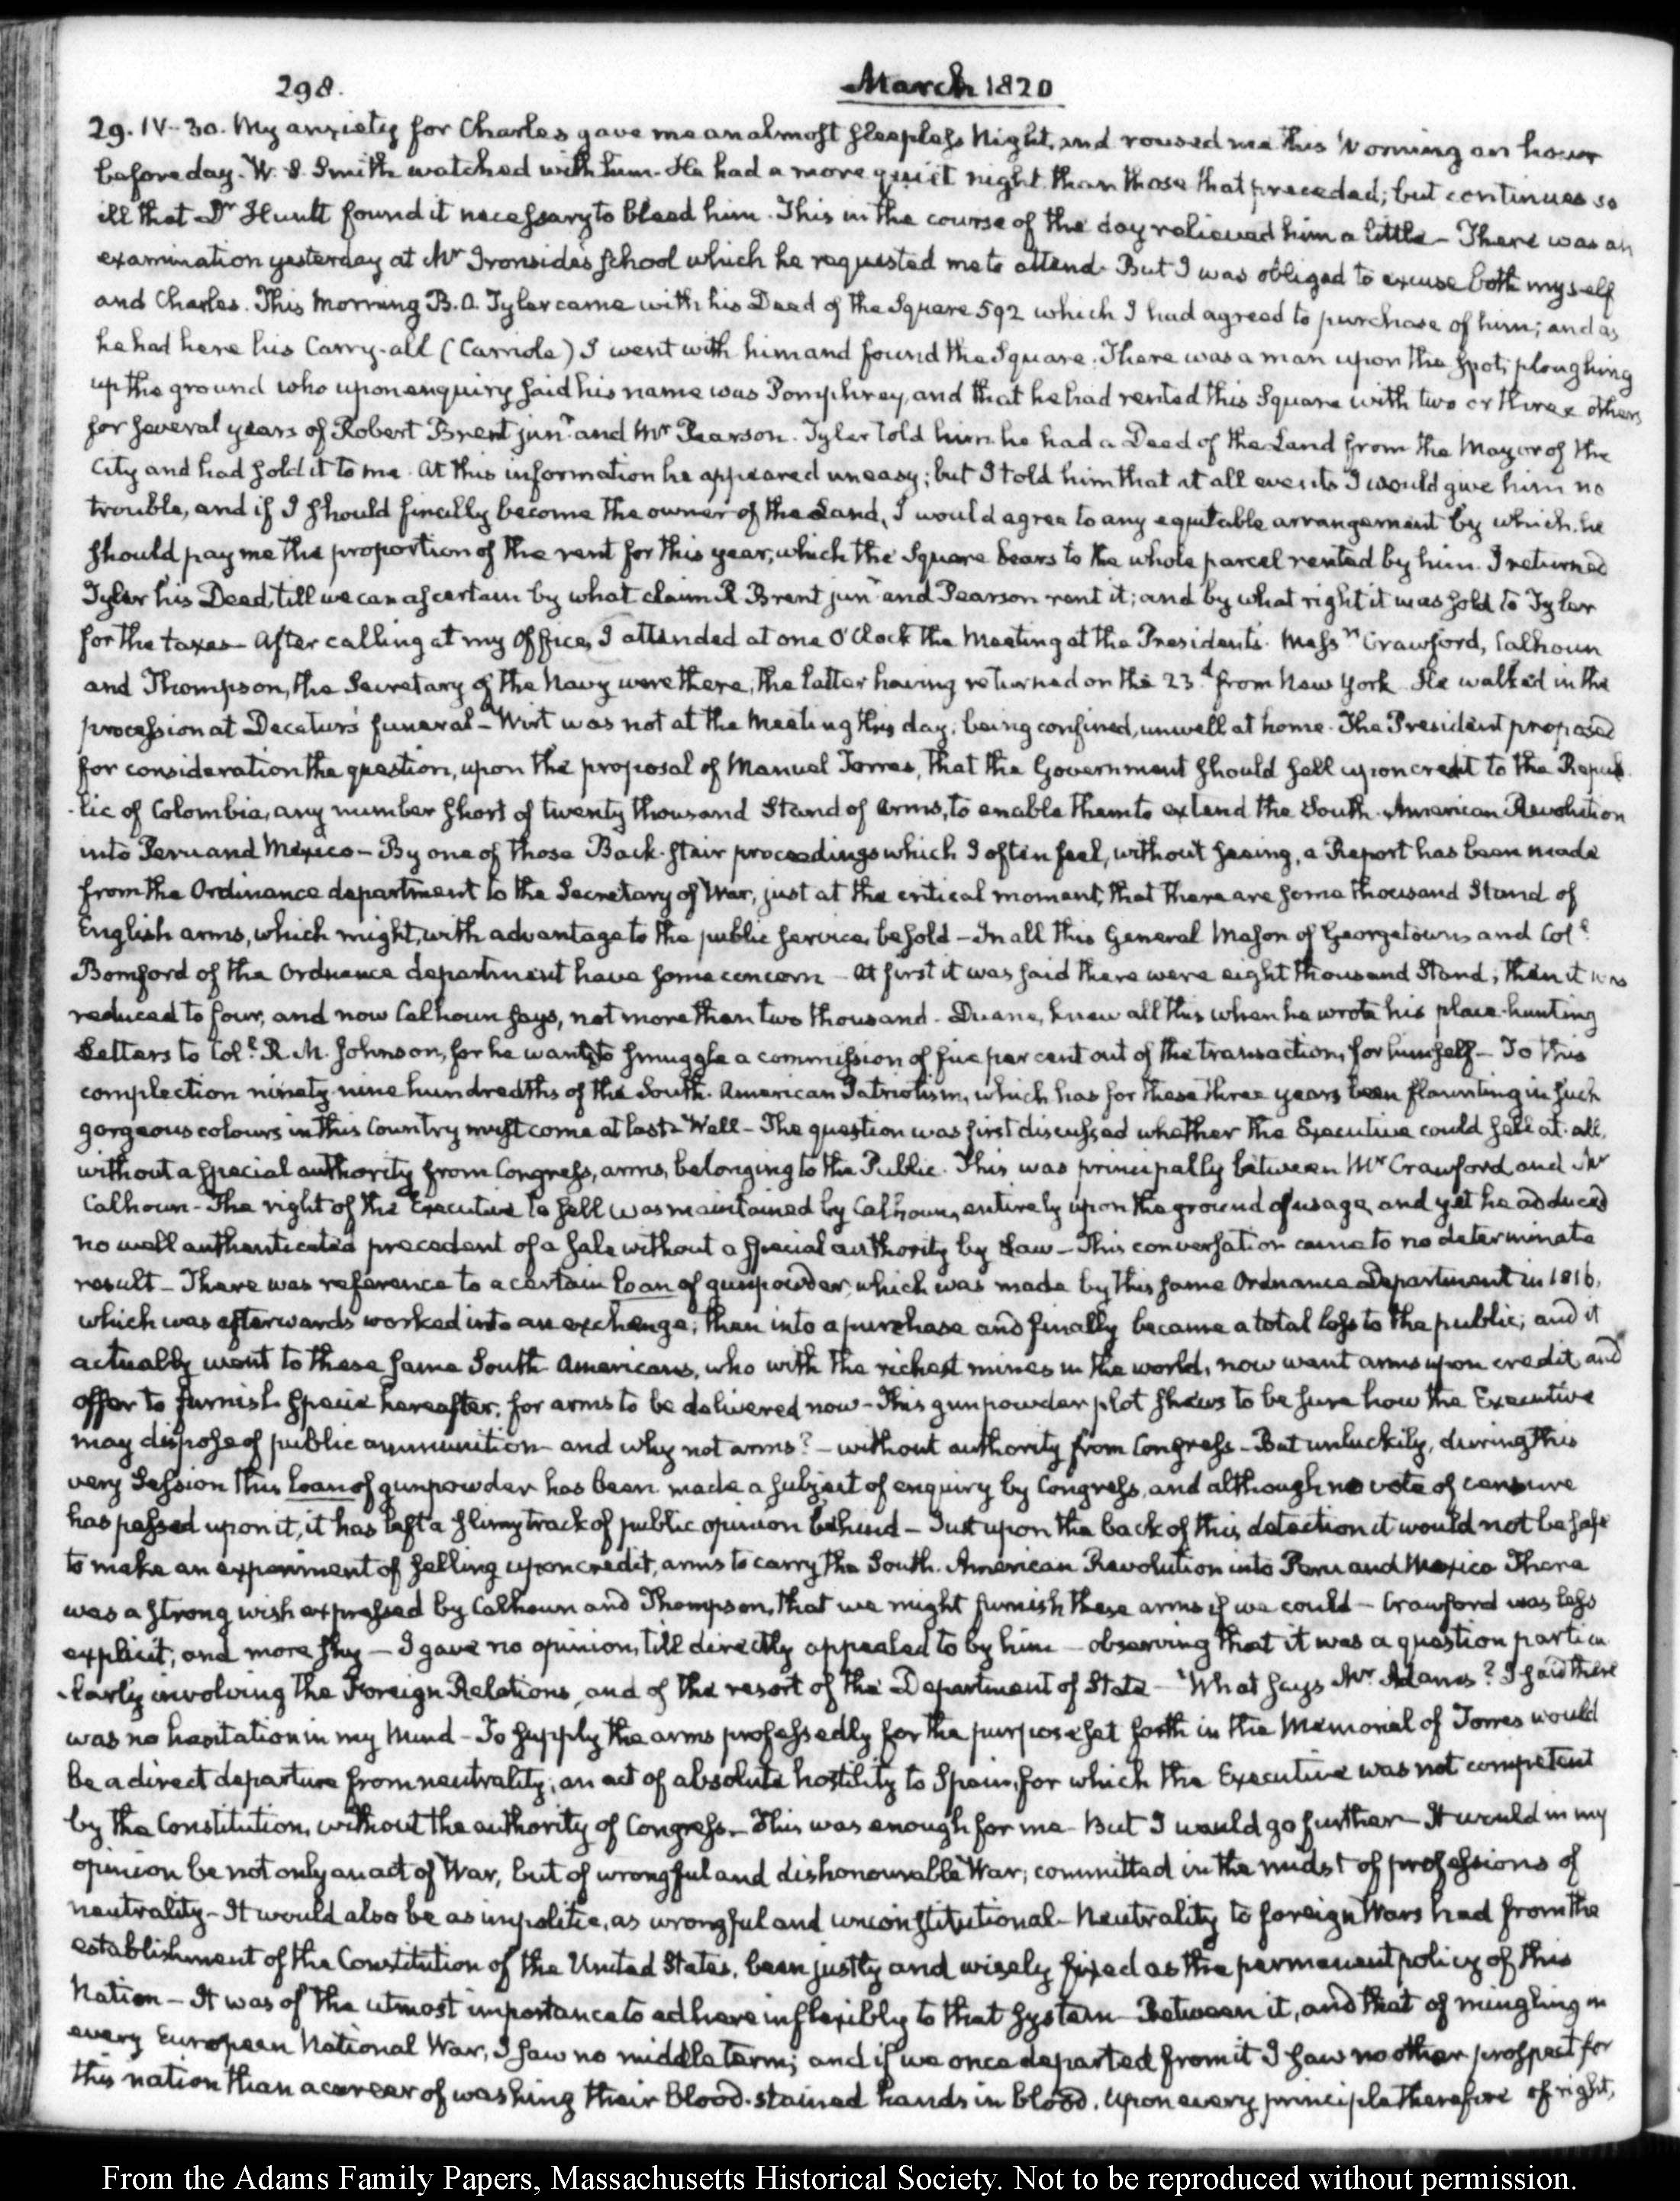 298.
March 1820
29. IV-30. My anxiety for Charles gave me an almost sleepless Night, and roused me this Morning an hour
before day. W. S. Smith watched with him. He had a more quiet night than those that preceded; but continues so
ill that Dr Huntt found it necessary to bleed him. This in the course of the day relieved him a little - There was an
examination yesterday at Mr Ironside's School which he requested me to attend. But I was obliged to excuse both myself
and Charles. This Morning B. O. Tyler came with his Deed of the Square 592 which I had agreed to purchase of him; and as
he had here his Carry-all (Carriole) I went with him and found the Square. There was a man upon the spot, ploughing
up the ground who upon enquiry said his name was Pomphrey, and that he had rented this Square with two or three others
for several years of Robert Brent junr and Mr Pearson. Tyler told him he had a Deed of the Land from the Mayor of the
City and had sold it to me. At this information he appeared uneasy; but I told him that at all events I would give him no
trouble, and if I should finally become the owner of the Land, I would agree to any equitable arrangement by which he
should pay me the proportion of the rent for this year, which the Square bears to the whole parcel rented by him. I returned
Tyler his Deed, till we can ascertain by what claim R Brent junr and Pearson rent it; and by what right it was sold to Tyler
for the taxes - After calling at my Office, I attended at one O'Clock the Meeting at the President's. Messrs Crawford, Calhoun
and Thompson, the Secretary of the Navy were there; the latter having returned on the 23d from New York. He walked in the
procession at Decatur's funeral - Wirt was not at the Meeting this day; being confined, unwell at home. The President proposed
for consideration the question, upon the proposal of Manuel Torres, that the Government should sell upon credit to the Repub
-lic of Colombia, any number short of twenty thousand Stand of Arms, to enable them to extend the South-American Revolution
into Peru and Mexico - By one of those Back-stair proceedings which I often feel, without seeing, a Report has been made
from the Ordinance department to the Secretary of War, just at the critical moment, that there are some thousand Stand of
English arms, which might, with advantage to the public service, be sold - In all this General Mason of Georgetown and Coll
Bomford of the Ordnance department have some concern - At first it was said there were eight thousand Stand; then it was
reduced to four, and now Calhoun says, not more than two thousand. Duane, knew all this when he wrote his place-hunting
Letters to Coll R. M. Johnson, for he wants to smuggle a commission of five per cent out of the transaction, for himself - To this
complection ninety-nine hundredths of the South-American Patriotism, which has for these three years been flaunting in such
gorgeous colours in this Country must come at last - Well - The question was first discussed whether the Executive could sell at all,
without a special authority from Congress, arms, belonging to the Public. This was principally between Mr Crawford and Mr
Calhoun - The right of the Executive to sell was maintained by Calhoun, entirely upon the ground of usage, and yet he adduced
no well authenticated precedent of a sale without a special authority by Law - This conversation came to no determinate
result - There was reference to a certain loan of gunpowder, which was made by this same Ordnance Department in 1816,
which was afterwards worked into an exchange; then into a purchase and finally became a total loss to the public; and it
actually went to these same South Americans, who with the richest mines in the world, now want arms upon credit, and
offer to furnish specie hereafter, for arms to be delivered now - This gunpowder plot shews to be sure how the Executive
may dispose of public ammunition - and why not arms? - without authority from Congress - But unluckily, during this
very Session this loan of gunpowder has been made a subject of enquiry by Congress, and although no vote of censure
has passed upon it, it has left a slimy track of public opinion behind - Just upon the back of this detection it would not be safe
to make an experiment of selling upon credit, arms to carry the South-American Revolution into Peru and Mexico There
was a strong wish expressed by Calhoun and Thompson, that we might furnish these arms if we could - Crawford was less
explicit, and more shy - I gave no opinion, till directly appealed to by him - observing that it was a question particu
-larly involving the Foreign Relations, and of the resort of the Department of State - "What says Mr Adams? I said there
was no hesitation in my Mind - To supply the arms professedly for the purpose set forth in the Memorial of Torres would
be a direct departure from neutrality; an act of absolute hostility to Spain, for which the Executive was not competent
by the Constitution, without the authority of Congress - This was enough for me - But I would go further - It would in my
opinion be not only an act of War, but of wrongful and dishonourable War; committed in the midst of professions of
neutrality - It would also be as impolitic, as wrongful and unconstitutional - Neutrality to foreign Wars had from the
establishment of the Constitution of the United States, been justly and wisely fixed as the permanent policy of this
Nation - It was of the utmost importance to adhere inflexibly to that system - Between it, and that of mingling in
every European National War, I saw no middle term; and if we once departed from it I saw no other prospect for
this nation than a career of washing their blood-stained hands in blood. Upon every principle therefore of right,
From the Adams Family Papers, Massachusetts Historical Society. Not to be reproduced without permission.